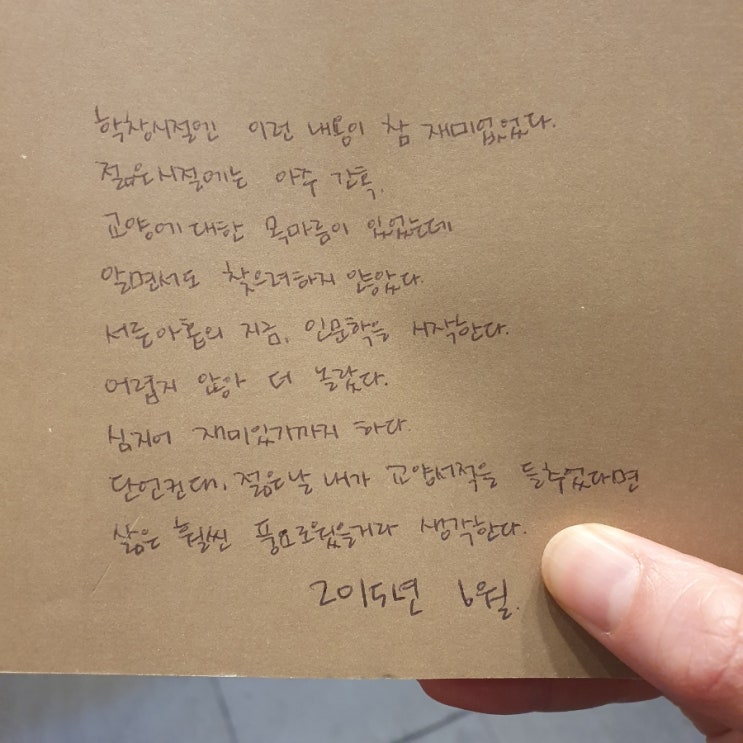 학창시절엔 이런 내용이 참 재미없었다.
젊은시절에는 아주 간혹,
교양에 대한 목마름이 있었는데
알면서도 찾으려하지 않았다.
서른아홉의 지금, 인문학을 시작한다.
어렵지 않아 더 놀랐다.
심지어 재미있기까지 하다.
단언컨대, 젊은날 내가 교양서적을 들추었다면
삶은 훨씬 풍요로웠을거라 생각한다.
2015년 6월.